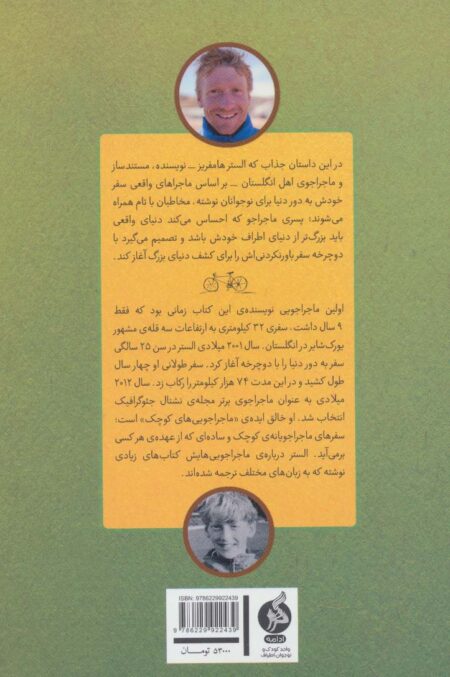 در این داستان جذاب که الستر هامفریز ــ نویسنده، مستندساز
و ماجراجوی اهل انگلستان ــ بر اساس ماجراهای واقعی سفر
خودش به دور دنیا برای نوجوانان نوشته، مخاطبان با تام همراه
می‌شوند؛ پسری ماجراجو که احساس می‌کند دنیای واقعی
باید بزرگ‌تر از دنیای اطراف خودش باشد و تصمیم می‌گیرد با
دوچرخه سفر باورنکردنی‌اش را برای کشف دنیای بزرگ آغاز کند.
اولین ماجراجویی نویسنده‌ی این کتاب زمانی بود که فقط
۹ سال داشت، سفری ۳۲ کیلومتری به ارتفاعات سه قله‌ی مشهور
یورک‌شایر در انگلستان. سال ۲۰۰۱ میلادی الستر در سن ۲۵ سالگی
سفر به دور دنیا را با دوچرخه آغاز کرد. سفر طولانی او چهار سال
طول کشید و در این مدت ۷۴ هزار کیلومتر را رکاب زد. سال ۲۰۱۲
میلادی به عنوان ماجراجوی برتر مجله‌ی نشنال جئوگرافیک
انتخاب شد. او خالق ایده‌ی «ماجراجویی‌های کوچک» است؛
سفرهای ماجراجویانه‌ی کوچک و ساده‌ای که از عهده‌ی هر کسی
برمی‌آید. الستر درباره‌ی ماجراجویی‌هایش کتاب‌های زیادی
نوشته که به زبان‌های مختلف ترجمه شده‌اند.
ISBN: 9786229922439
9 786229 922439
۵۳۰۰۰ تومان
ادامه
واحد کودک و
نوجوان اطراف